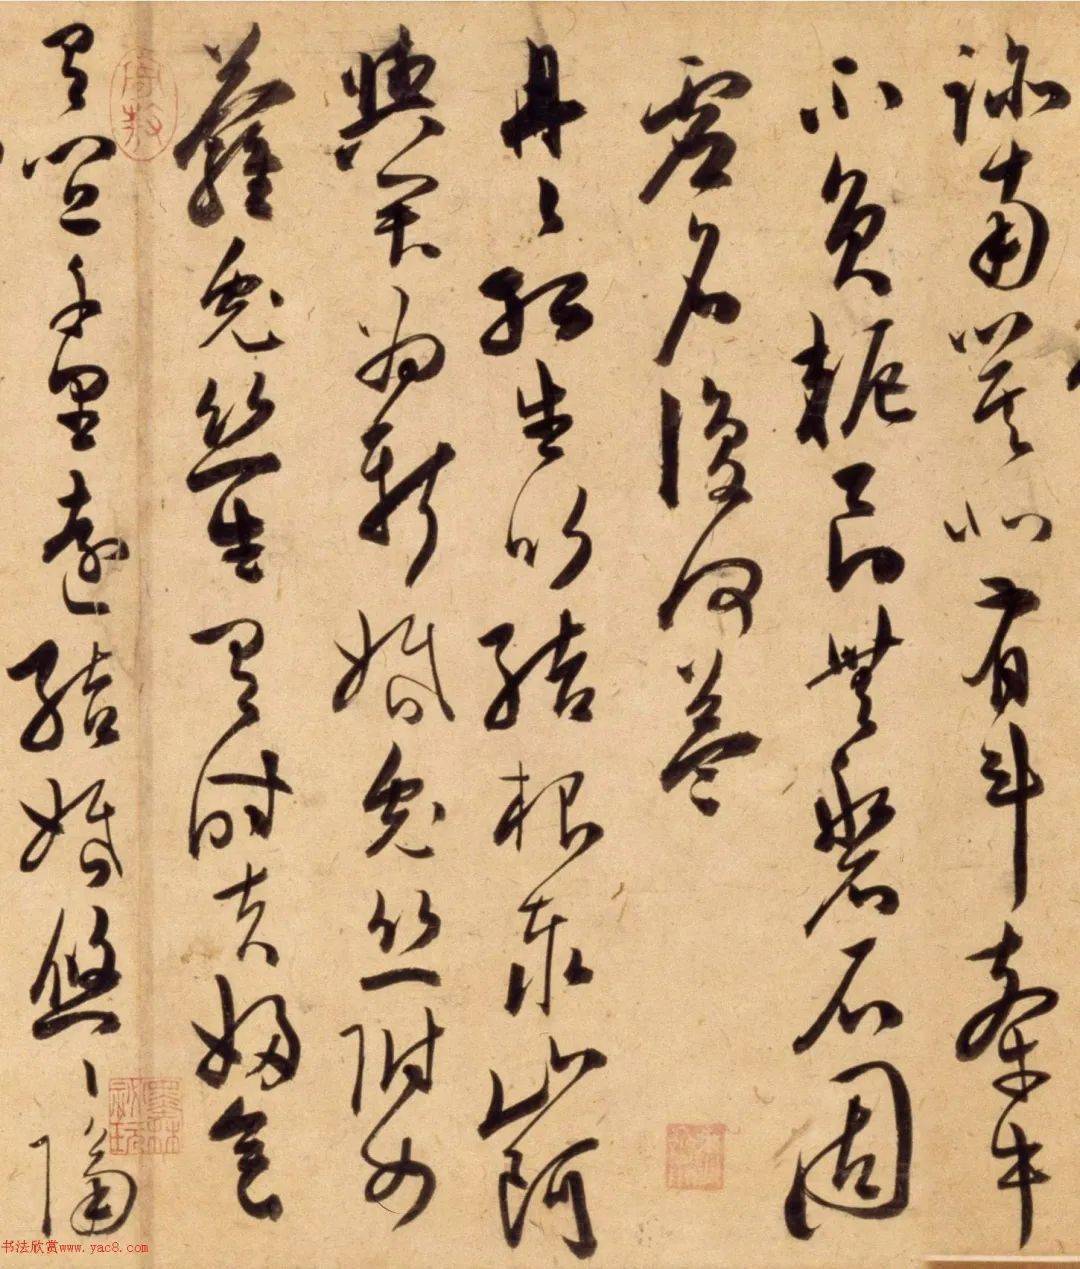 跡南箕北有斗牽牛
不負軛良無磐石固
虛名復何益
冉〻孤生竹結根泰山阿
與君為新婚兔絲附女
蘿兔絲生有時夫婦會
有宜千里遠結婚悠〻隔
墨林祕玩
书法欣赏www.yac8.com